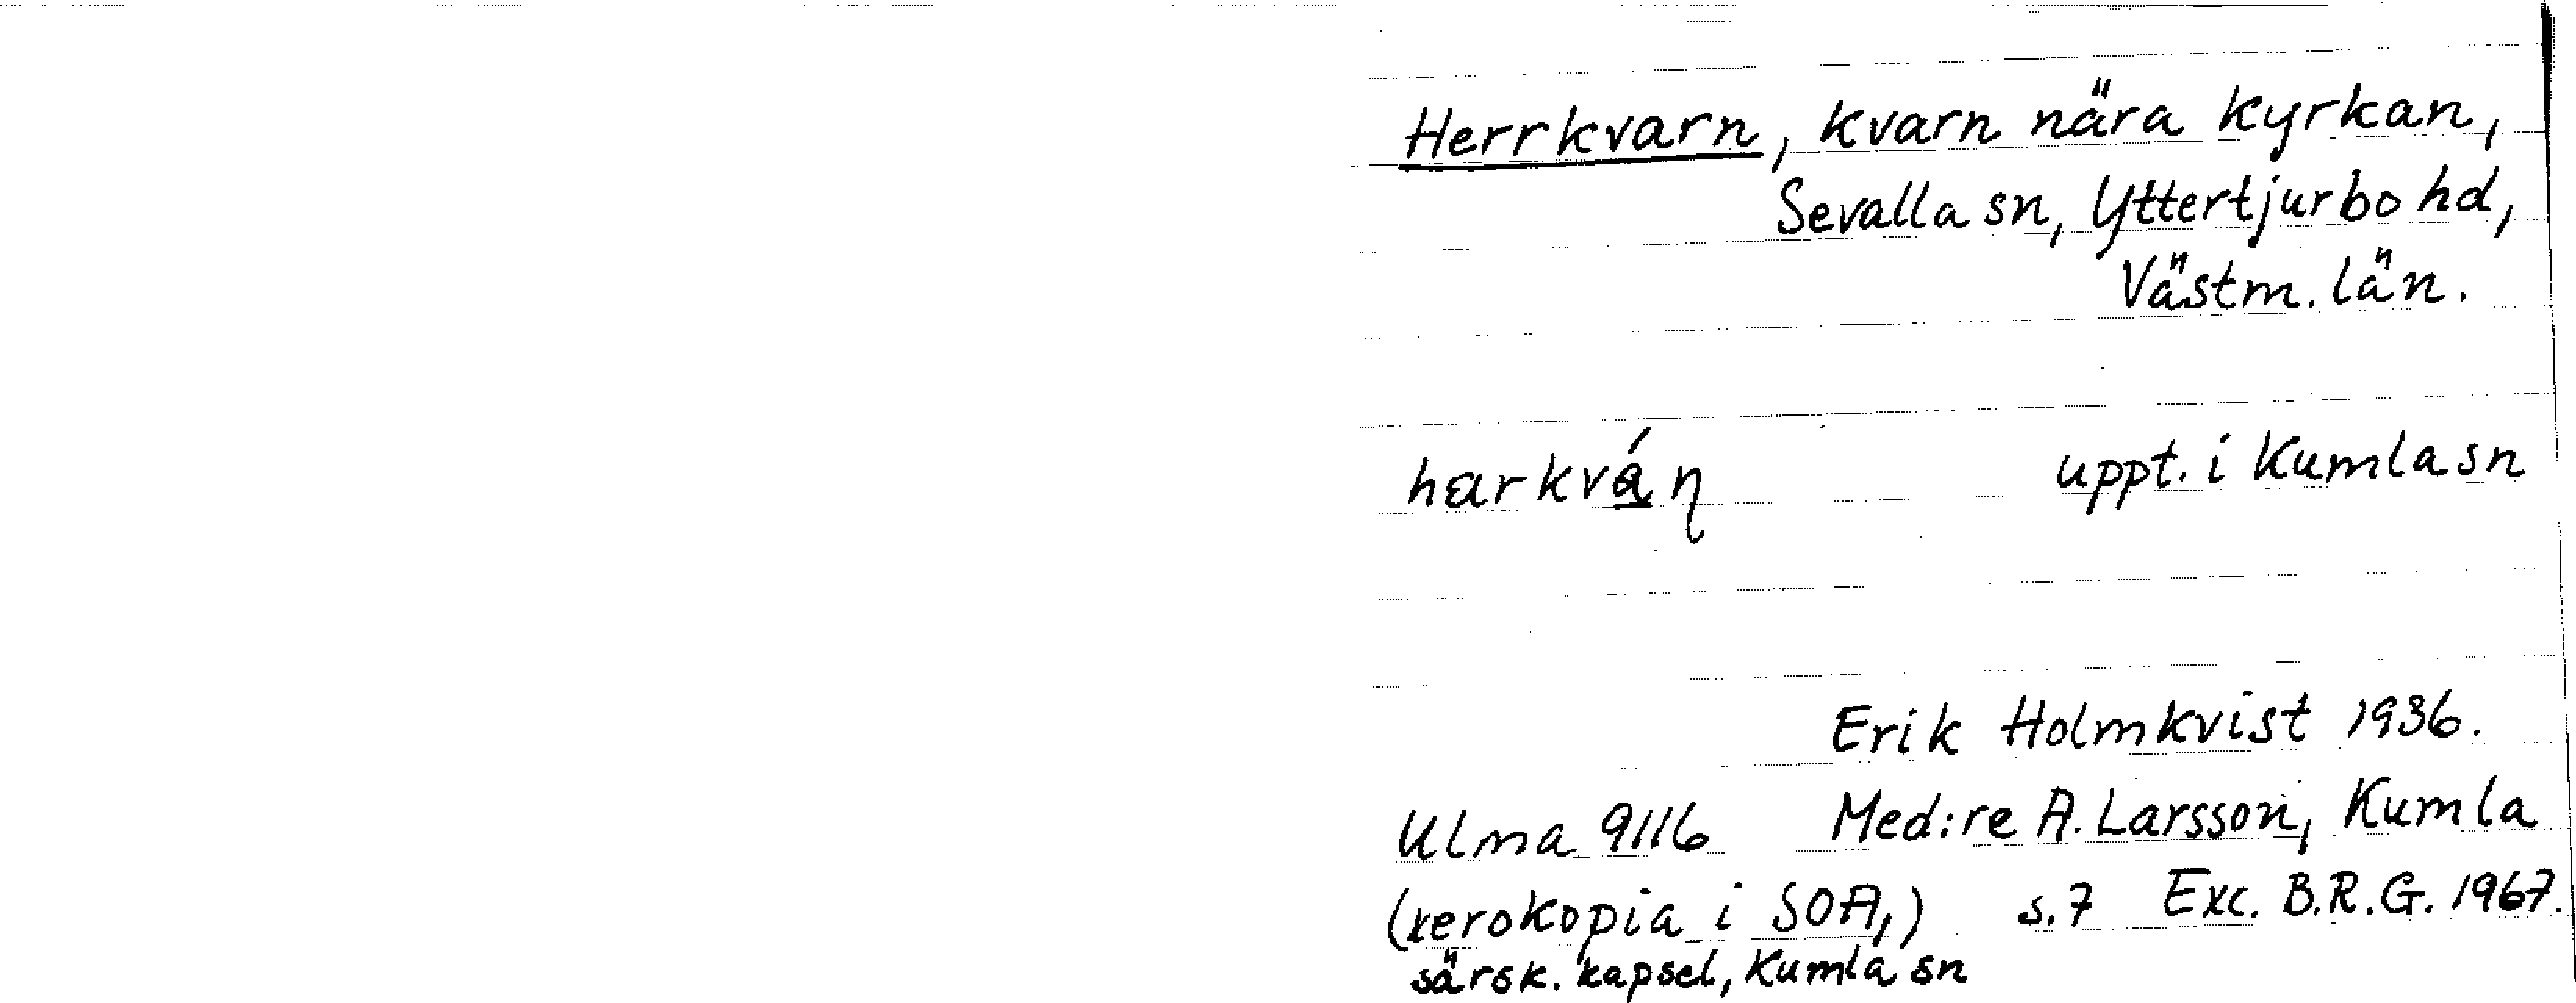 Herrkvarn, kvarn nära kyrkan,
Sevalla sn, Yttertjurbo hd,
Västm. län.
harkvá̱ņ uppt. i Kumla sn
Erik Holmkvist 1936.
Ulma 9116 Med:re A. Larsson, Kumla
(xerokopia i SOA,) s.7 Exc. B.R.G. 1967.
särsk. kapsel, Kumla sn